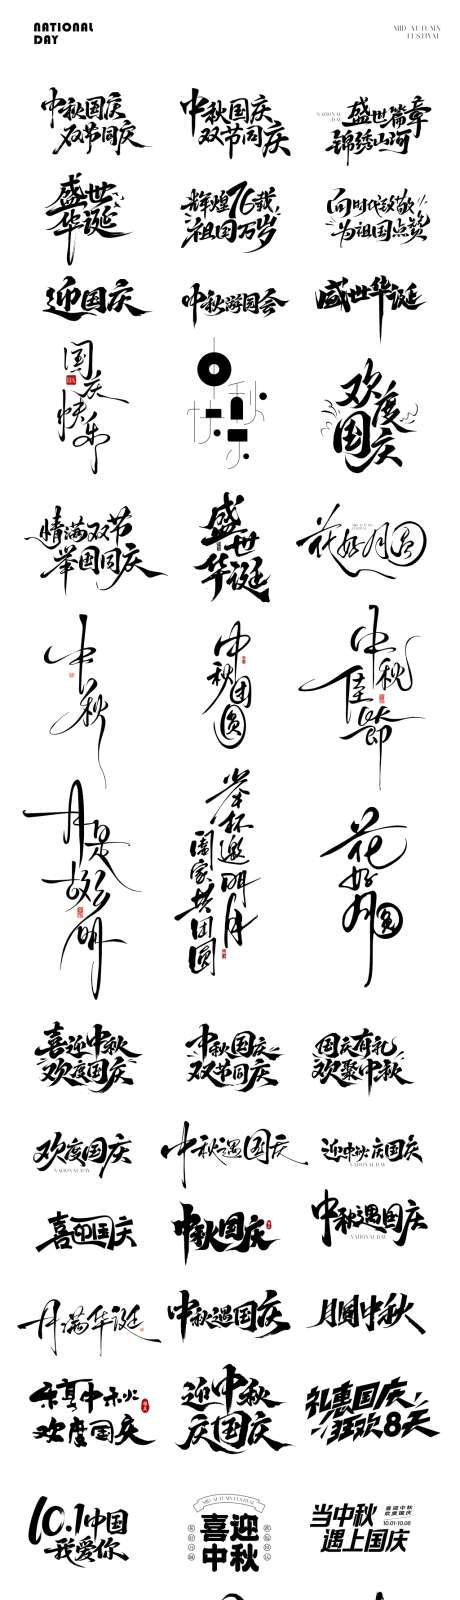 NATIONAL
DAY
MID-AUTUMN
FESTIVAL
中秋国庆
双节同庆
中秋国庆
双节同庆
NATIONAL
DAY
盛世篇章
锦绣山河
盛世
华诞
辉煌76载
祖国万岁
向时代致敬
为祖国点赞
迎国庆
中秋游园会
盛世华诞
国庆
快乐
中秋
快乐
欢度
国庆
情满双节
举国同庆
盛世
华诞
花好月圆
中秋
中秋团圆
中秋
佳節
月是
故乡
明
举杯邀明月
阖家共团圆
花好
月圆
喜迎中秋
欢度国庆
中秋国庆
双节同庆
国庆有礼
欢聚中秋
欢度国庆
NATIONAL DAY
中秋遇国庆
迎中秋庆国庆
NATIONAL DAY
喜迎国庆
中秋国庆
中秋遇国庆
NATIONAL DAY
月满华诞
中秋遇国庆
月圆中秋
乐享中秋
欢度国庆
迎中秋
庆国庆
礼惠国庆
狂欢8天
10.1中国
我爱你
MID-AUTUMN FESTIVAL
喜迎
中秋
当中秋
遇上国庆
喜迎中秋
欢度国庆
10.01-10.08